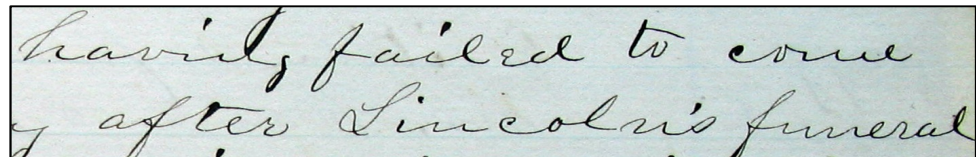 having failed to come
y after Lincoln's funeral